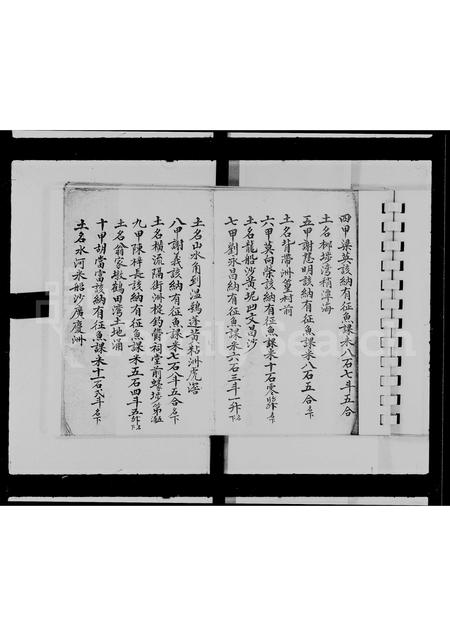 四甲梁英該納有征魚課米八石七斗五合
土名椰埗湾稍潭海
五甲謝慧明該納有征魚課米八石五合名下
土名背灣洲篁村前
六甲莫向榮該納有征魚課米十石零
土名龍船沙黄坭凹文昌沙
七甲劉永昌納有征魚課米六石三斗一升名下
土名山水角到温鷄逕黄粘洲虎滘
八甲謝義該納有征魚課米七石八斗五合名下
土名横流隔街洲
祠堂前
九甲陳梓長該納有征魚課米五石四斗五升名下
土名翁家墩鶴田湾土地涌
十甲胡當當該納有征魚課米十一石弍斗名下
土名水河米船沙廣慶洲
FamilySearch